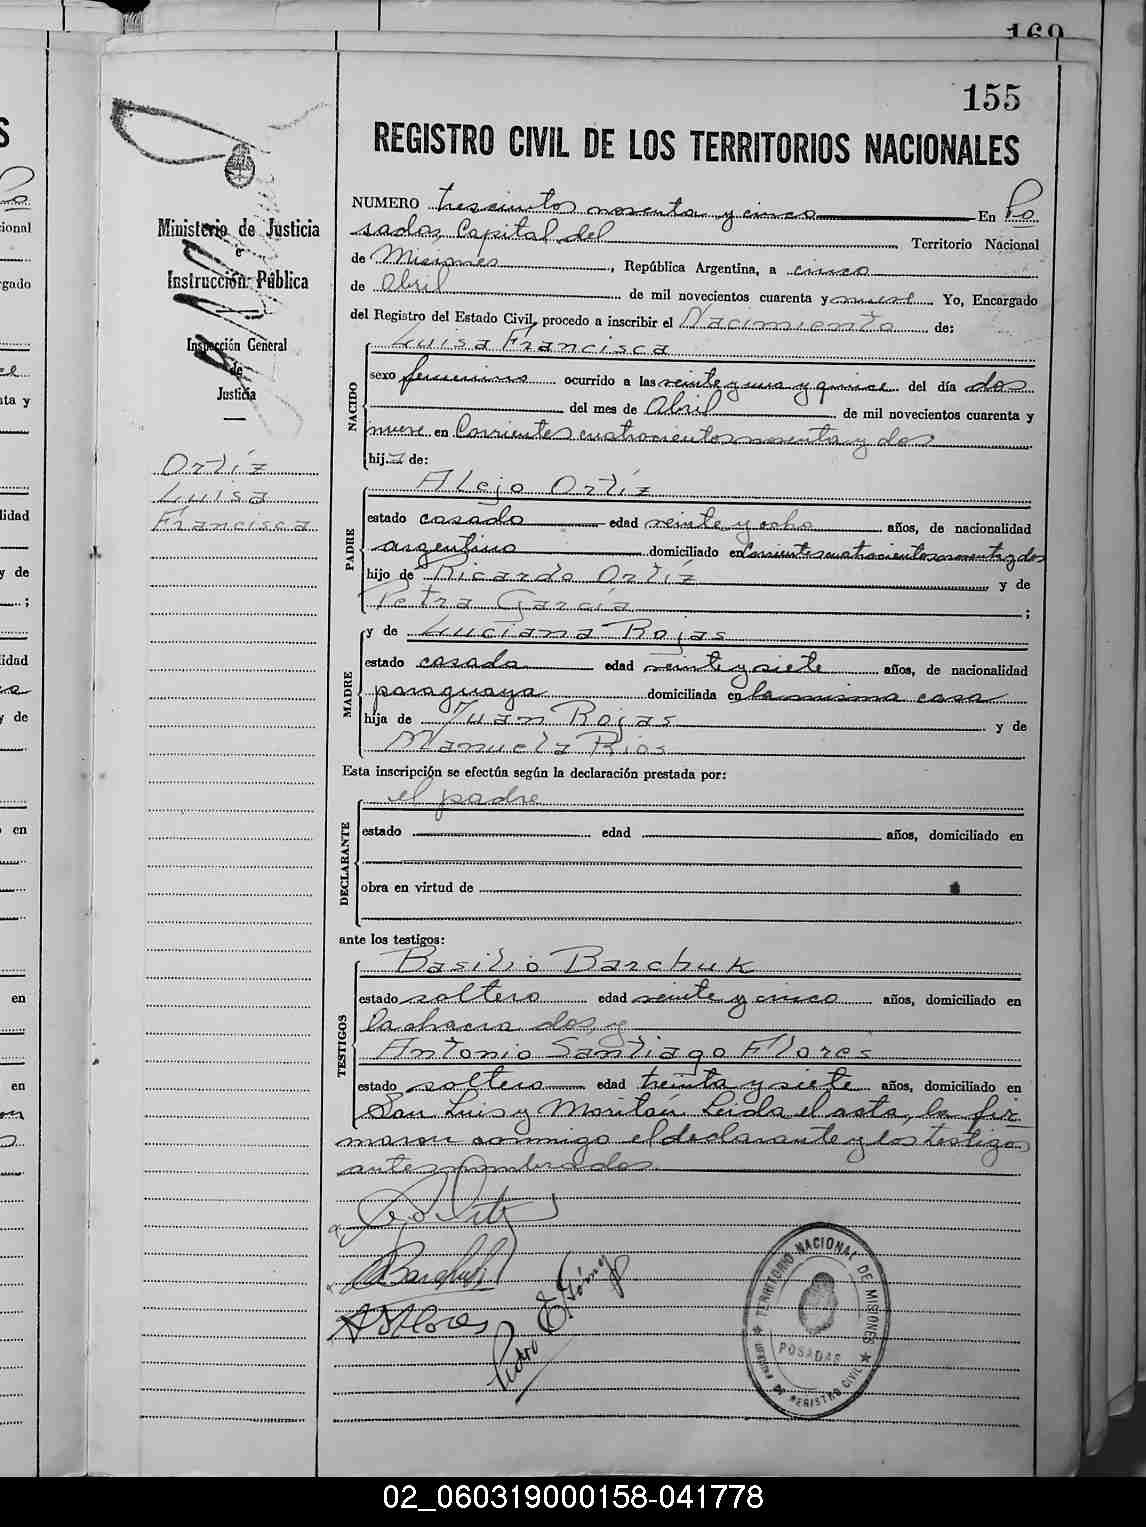 169
155
REGISTRO CIVIL DE LOS TERRITORIOS NACIONALES
Ministerio de Justicia
e
Instrucción Pública
Inspección General
de
Justicia
Ortíz
Luisa
Francisca
NUMERO trescientos noventa y cinco En Po
sadas, Capital del Territorio Nacional
de Misiones, República Argentina, a cinco
de Abril de mil novecientos cuarenta y nueve. Yo, Encargado
del Registro del Estado Civil, procedo a inscribir el Nacimiento de:
Luisa Francisca
NACIDO
sexo femenino ocurrido a las veinte y una y quince del día dos
del mes de Abril de mil novecientos cuarenta y
nueve en Corrientes cuatrocientos noventa y dos
hija de:
Alejo Ortíz
PADRE
estado casado edad veinte y ocho años, de nacionalidad
argentino domiciliado en Corrientes cuatrocientos noventa y dos
hijo de Ricardo Ortíz y de
Petra García ;
y de Luciana Rojas
MADRE
estado casada edad veinte y siete años, de nacionalidad
paraguaya domiciliada en la misma casa
hija de Juan Rojas y de
Manuela Rios
Esta inscripción se efectúa según la declaración prestada por:
el padre
DECLARANTE
estado edad años, domiciliado en
obra en virtud de
ante los testigos:
Basilio Barchuk
TESTIGOS
estado soltero edad veinte y cinco años, domiciliado en
la chacra dos, y
Antonio Santiago Flores
estado soltero edad treinta y siete años, domiciliado en
San Luis y Moritán. Leida el acta, la fir
maron conmigo el declarante y los testigos
antes nombrados
Barchuk
A S Flores
Pedro E Gómez
TERRITORIO NACIONAL DE MISIONES
POSADAS
REGISTRO CIVIL
02_060319000158-041778